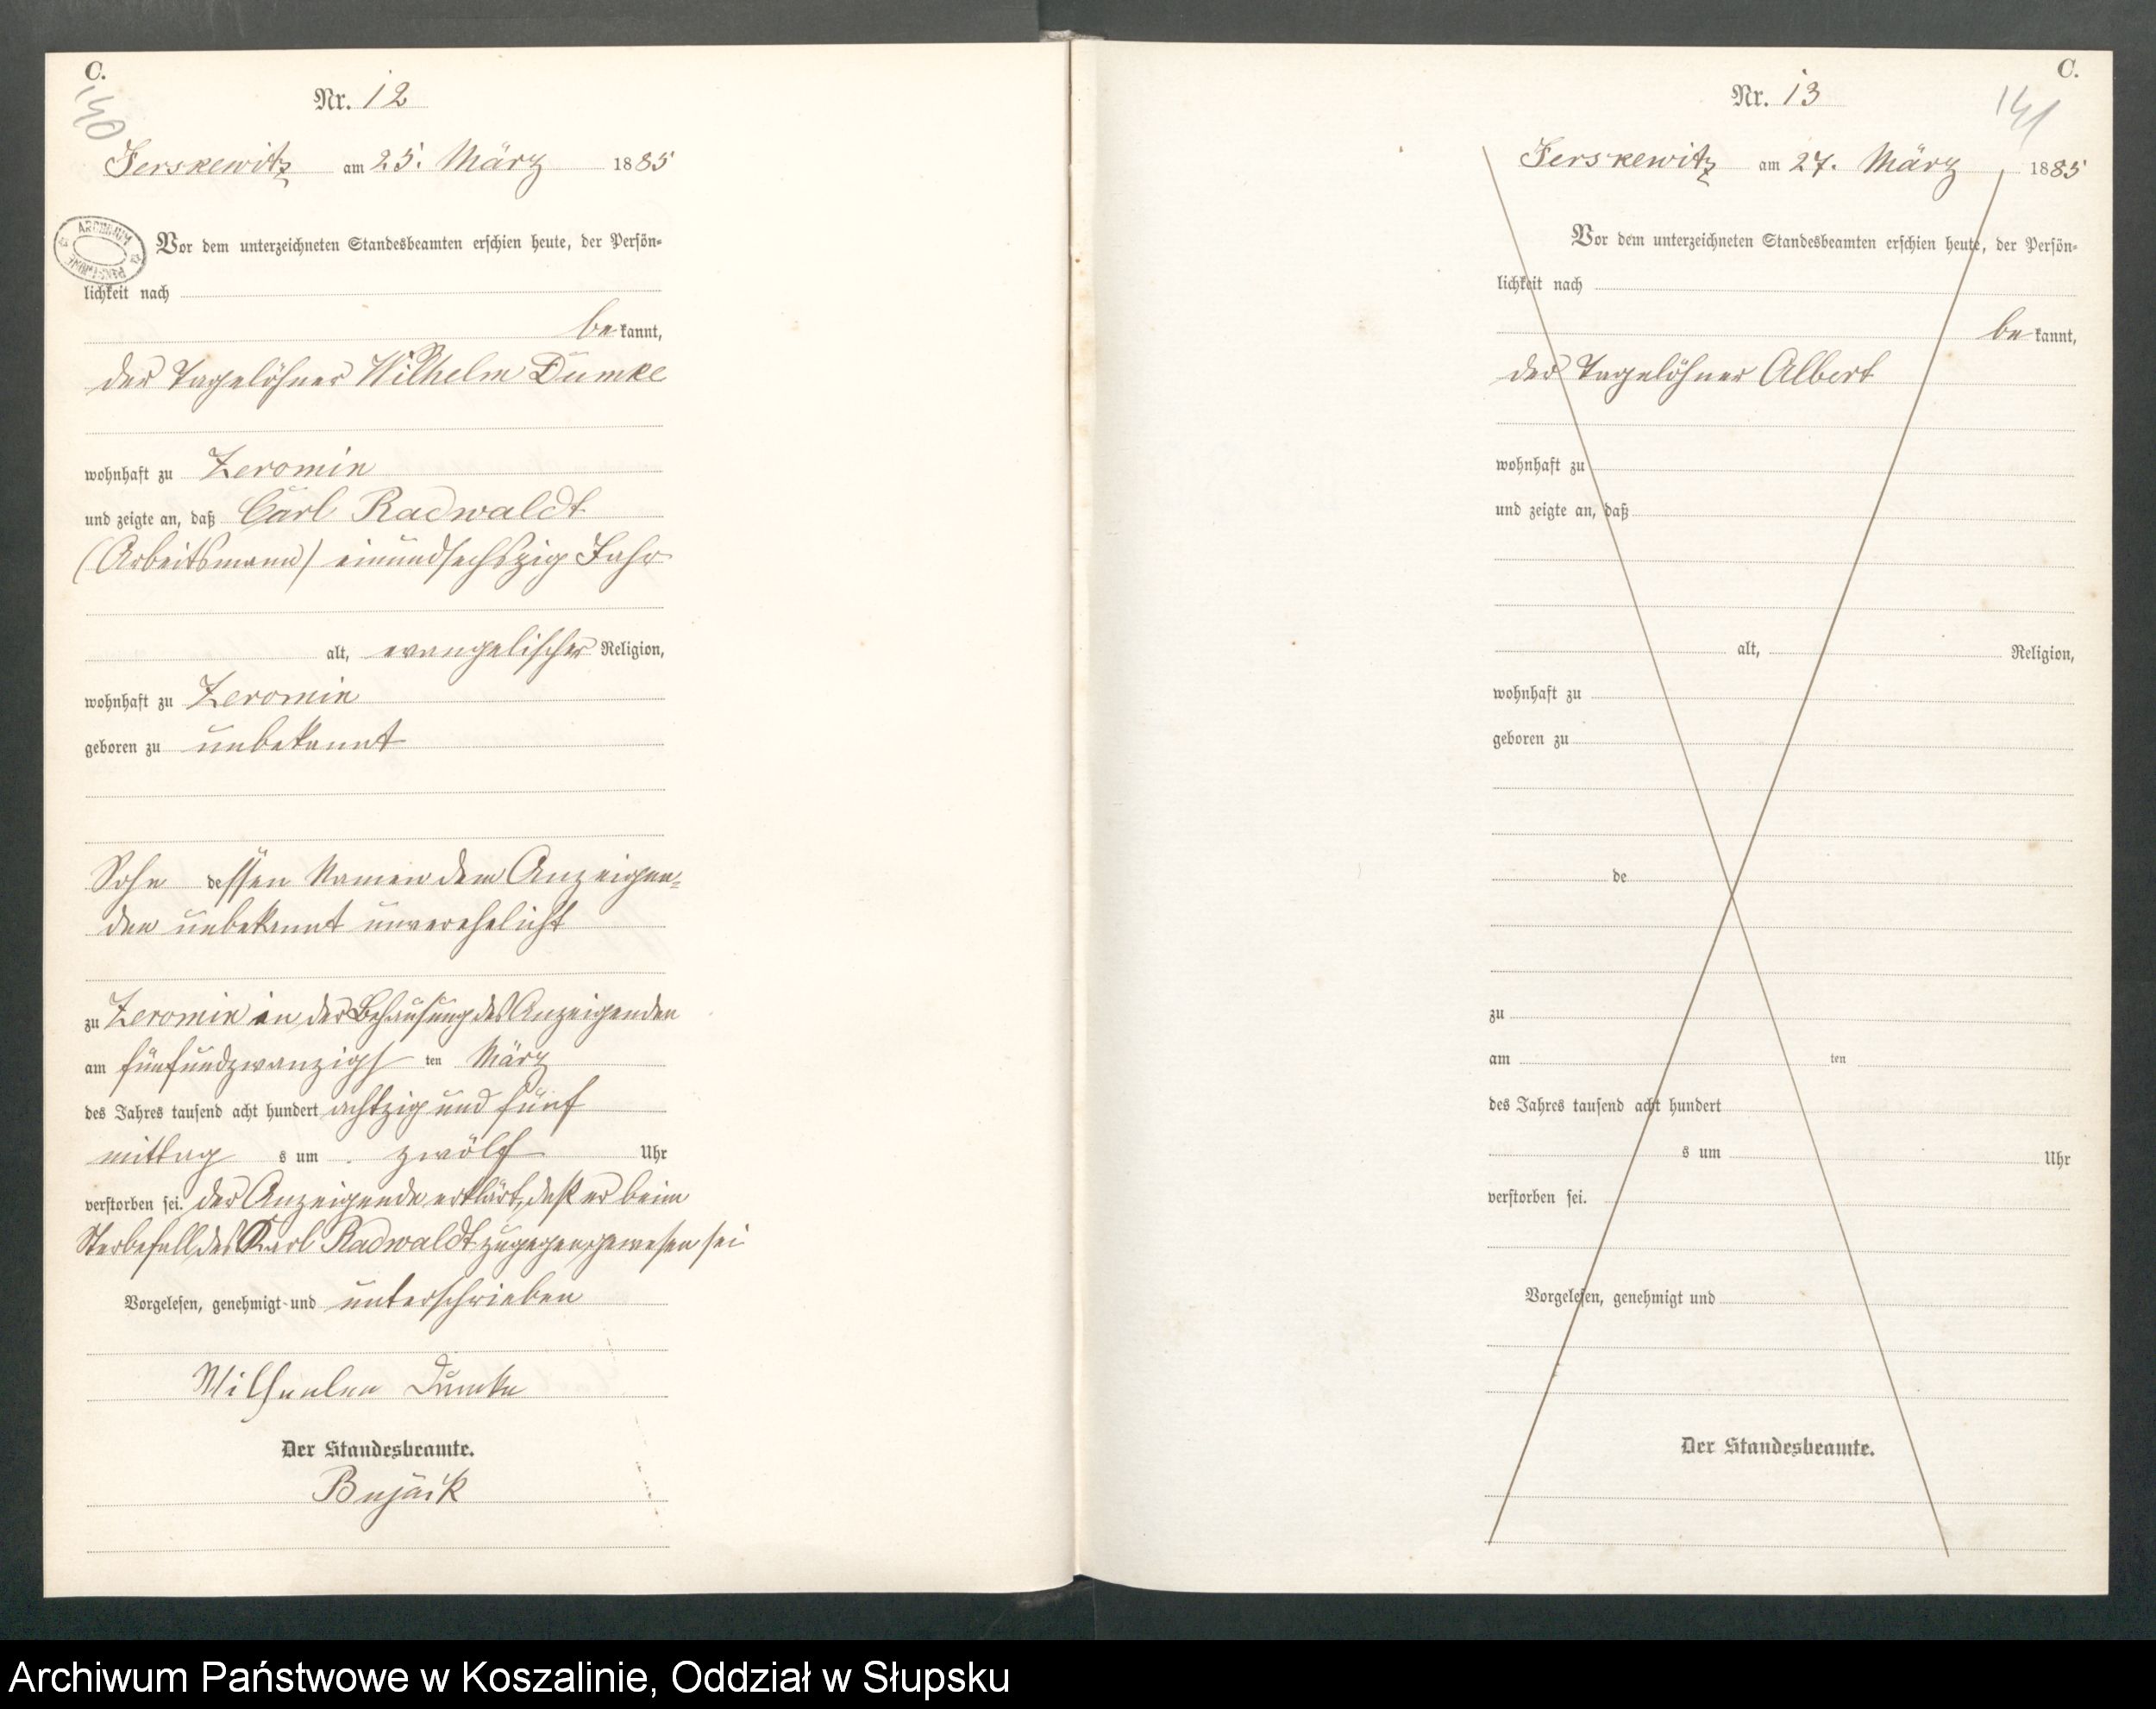 C.
140
Nr. 12
Jerskewitz am 25. März 1885
Vor dem unterzeichneten Standesbeamten erschien heute, der Persön-
lichkeit nach
be kannt,
der Tagelöhner Wilhelm Dumke
wohnhaft zu Zeromin
und zeigte an, daß Carl Radwaldt
(Arbeitsmann) einundsechszig Jahr
alt, evangelischer Religion,
wohnhaft zu Zeromin
geboren zu unbekannt
Sohn dessen Namen dem Anzeigen-
den unbekannt unverehelicht
zu Zeromin in der Behausung des Anzeigenden
am fünfundzwanzigs ten März
des Jahres tausend acht hundert achtzig und fünf
mittag s um zwölf Uhr
verstorben sei. der Anzeigende erklärt, daß er beim
Sterbefall des Karl Radwaldt zugegen gewesen sei
Vorgelesen, genehmigt und unterschrieben
Dumke
Der Standesbeamte.
Bujack
C.
141
Nr. 13
Jerskewitz am 27. März 1885
Vor dem unterzeichneten Standesbeamten erschien heute, der Persön-
lichkeit nach
be kannt,
der Tagelöhner Albert
wohnhaft zu
und zeigte an, daß
alt, Religion,
wohnhaft zu
geboren zu
de
zu
am ten
des Jahres tausend acht hundert
s um Uhr
verstorben sei.
Vorgelesen, genehmigt und
Der Standesbeamte.
Archiwum Państwowe w Koszalinie, Oddział w Słupsku